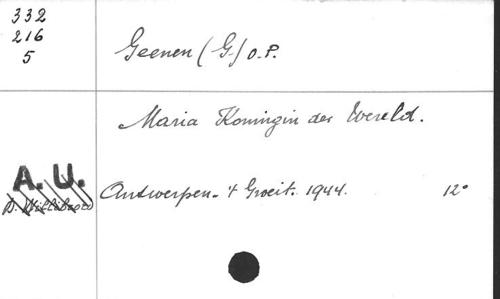 332
216
5
Geenen (G.) O.P.
Maria Koningin der Wereld.
A. U.
D. Willibrord
Antwerpen - 't Groeit. 1944. 12°